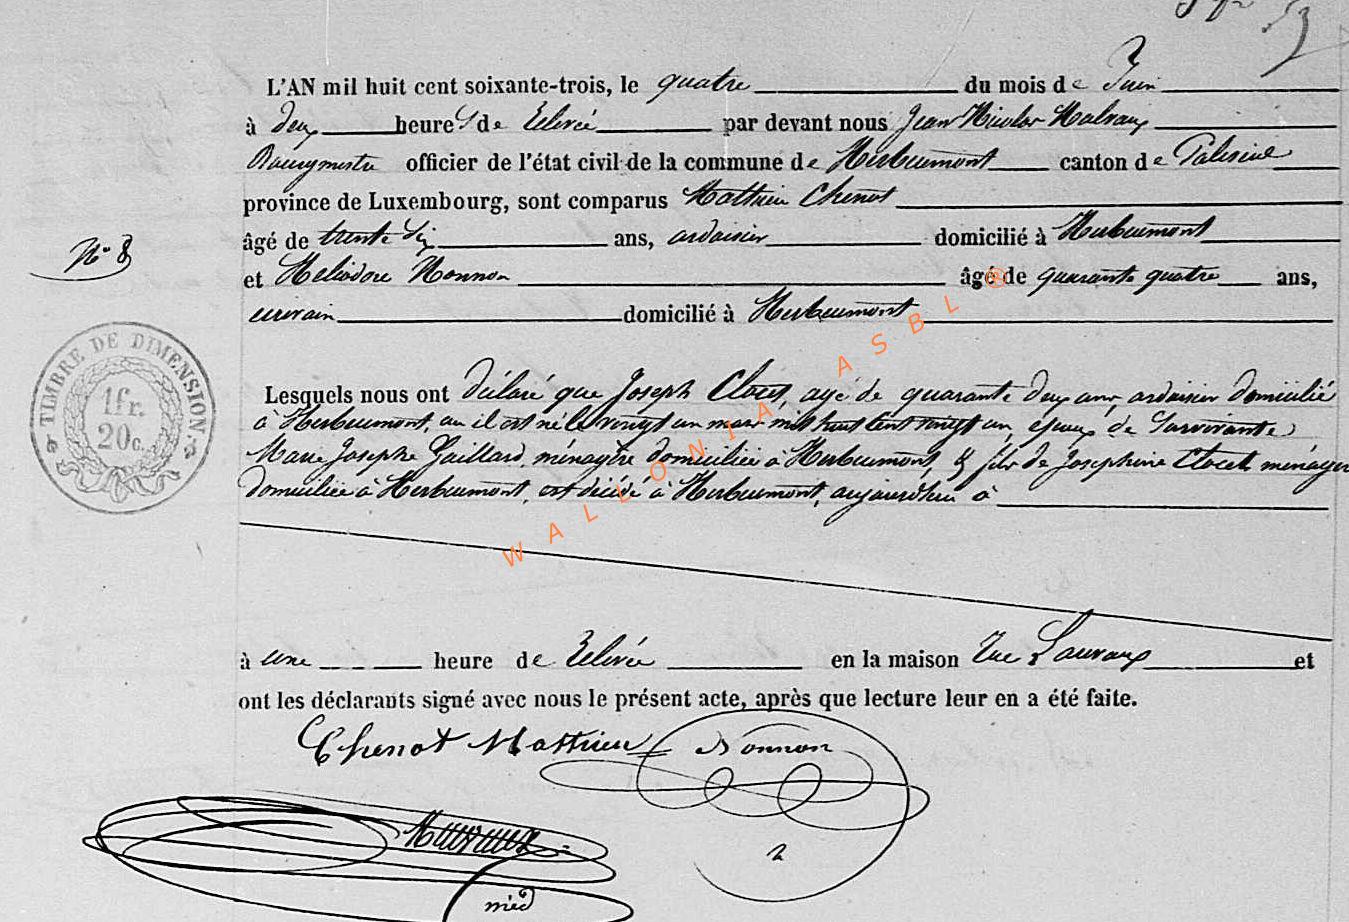 L'AN mil huit cent soixante-trois, le quatre du mois de Juin
à deux heures de relevée par devant nous Jean Nicolas Malvaux
Bourgmestre officier de l'état civil de la commune de Herbeumont canton de Paliseul
province de Luxembourg, sont comparus Mathieu Chenot
âgé de trente six ans, ardoisier domicilié à Herbeumont
N° 8
et Héliodore Nonnon âgé de quarante quatre ans,
écrivain domicilié à Herbeumont
TIMBRE DE DIMENSION
1fr.
20c.
Lesquels nous ont déclaré que Joseph Closet, agé de quarante deux ans, ardoisier domicilié
à Herbeumont, où il est né le vingt un mars mil huit cent vingt un, époux de Survivante
Marie Josephe Gaillard, ménagère domiciliée à Herbeumont, & fils de Josephine Closet, ménagère
domiciliée à Herbeumont, est décédé à Herbeumont, aujourd'hui à
WALLONIA ASBL ®
à une heure de relevée en la maison rue Lauvaux et
ont les déclarants signé avec nous le présent acte, après que lecture leur en a été faite.
Chenot Mathieu Nonnon